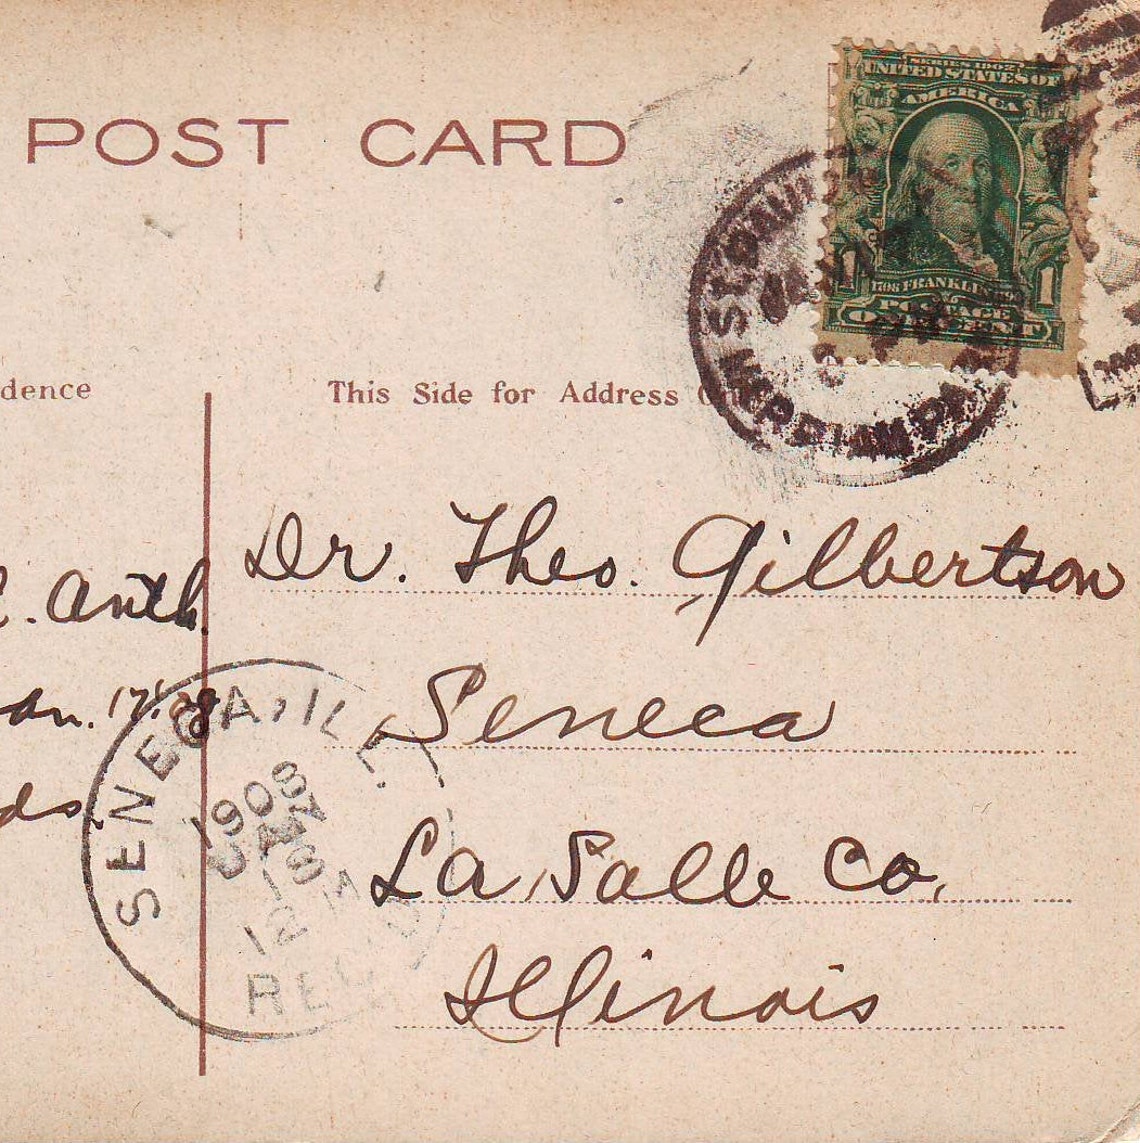 POST CARD
SERIES 1902
UNITED STATES OF
AMERICA
1 1
FRANKLIN
POSTAGE
ONE CENT
ST. PAUL
MERRIAM PARK
dence
This Side for Address Only
Dr. Theo. Gilbertson
Seneca
La Salle Co.
Illinois
. Anth.
an. 17. '08
ds.
SENECA, ILL.
1908
JAN
18
12 M
REC'D